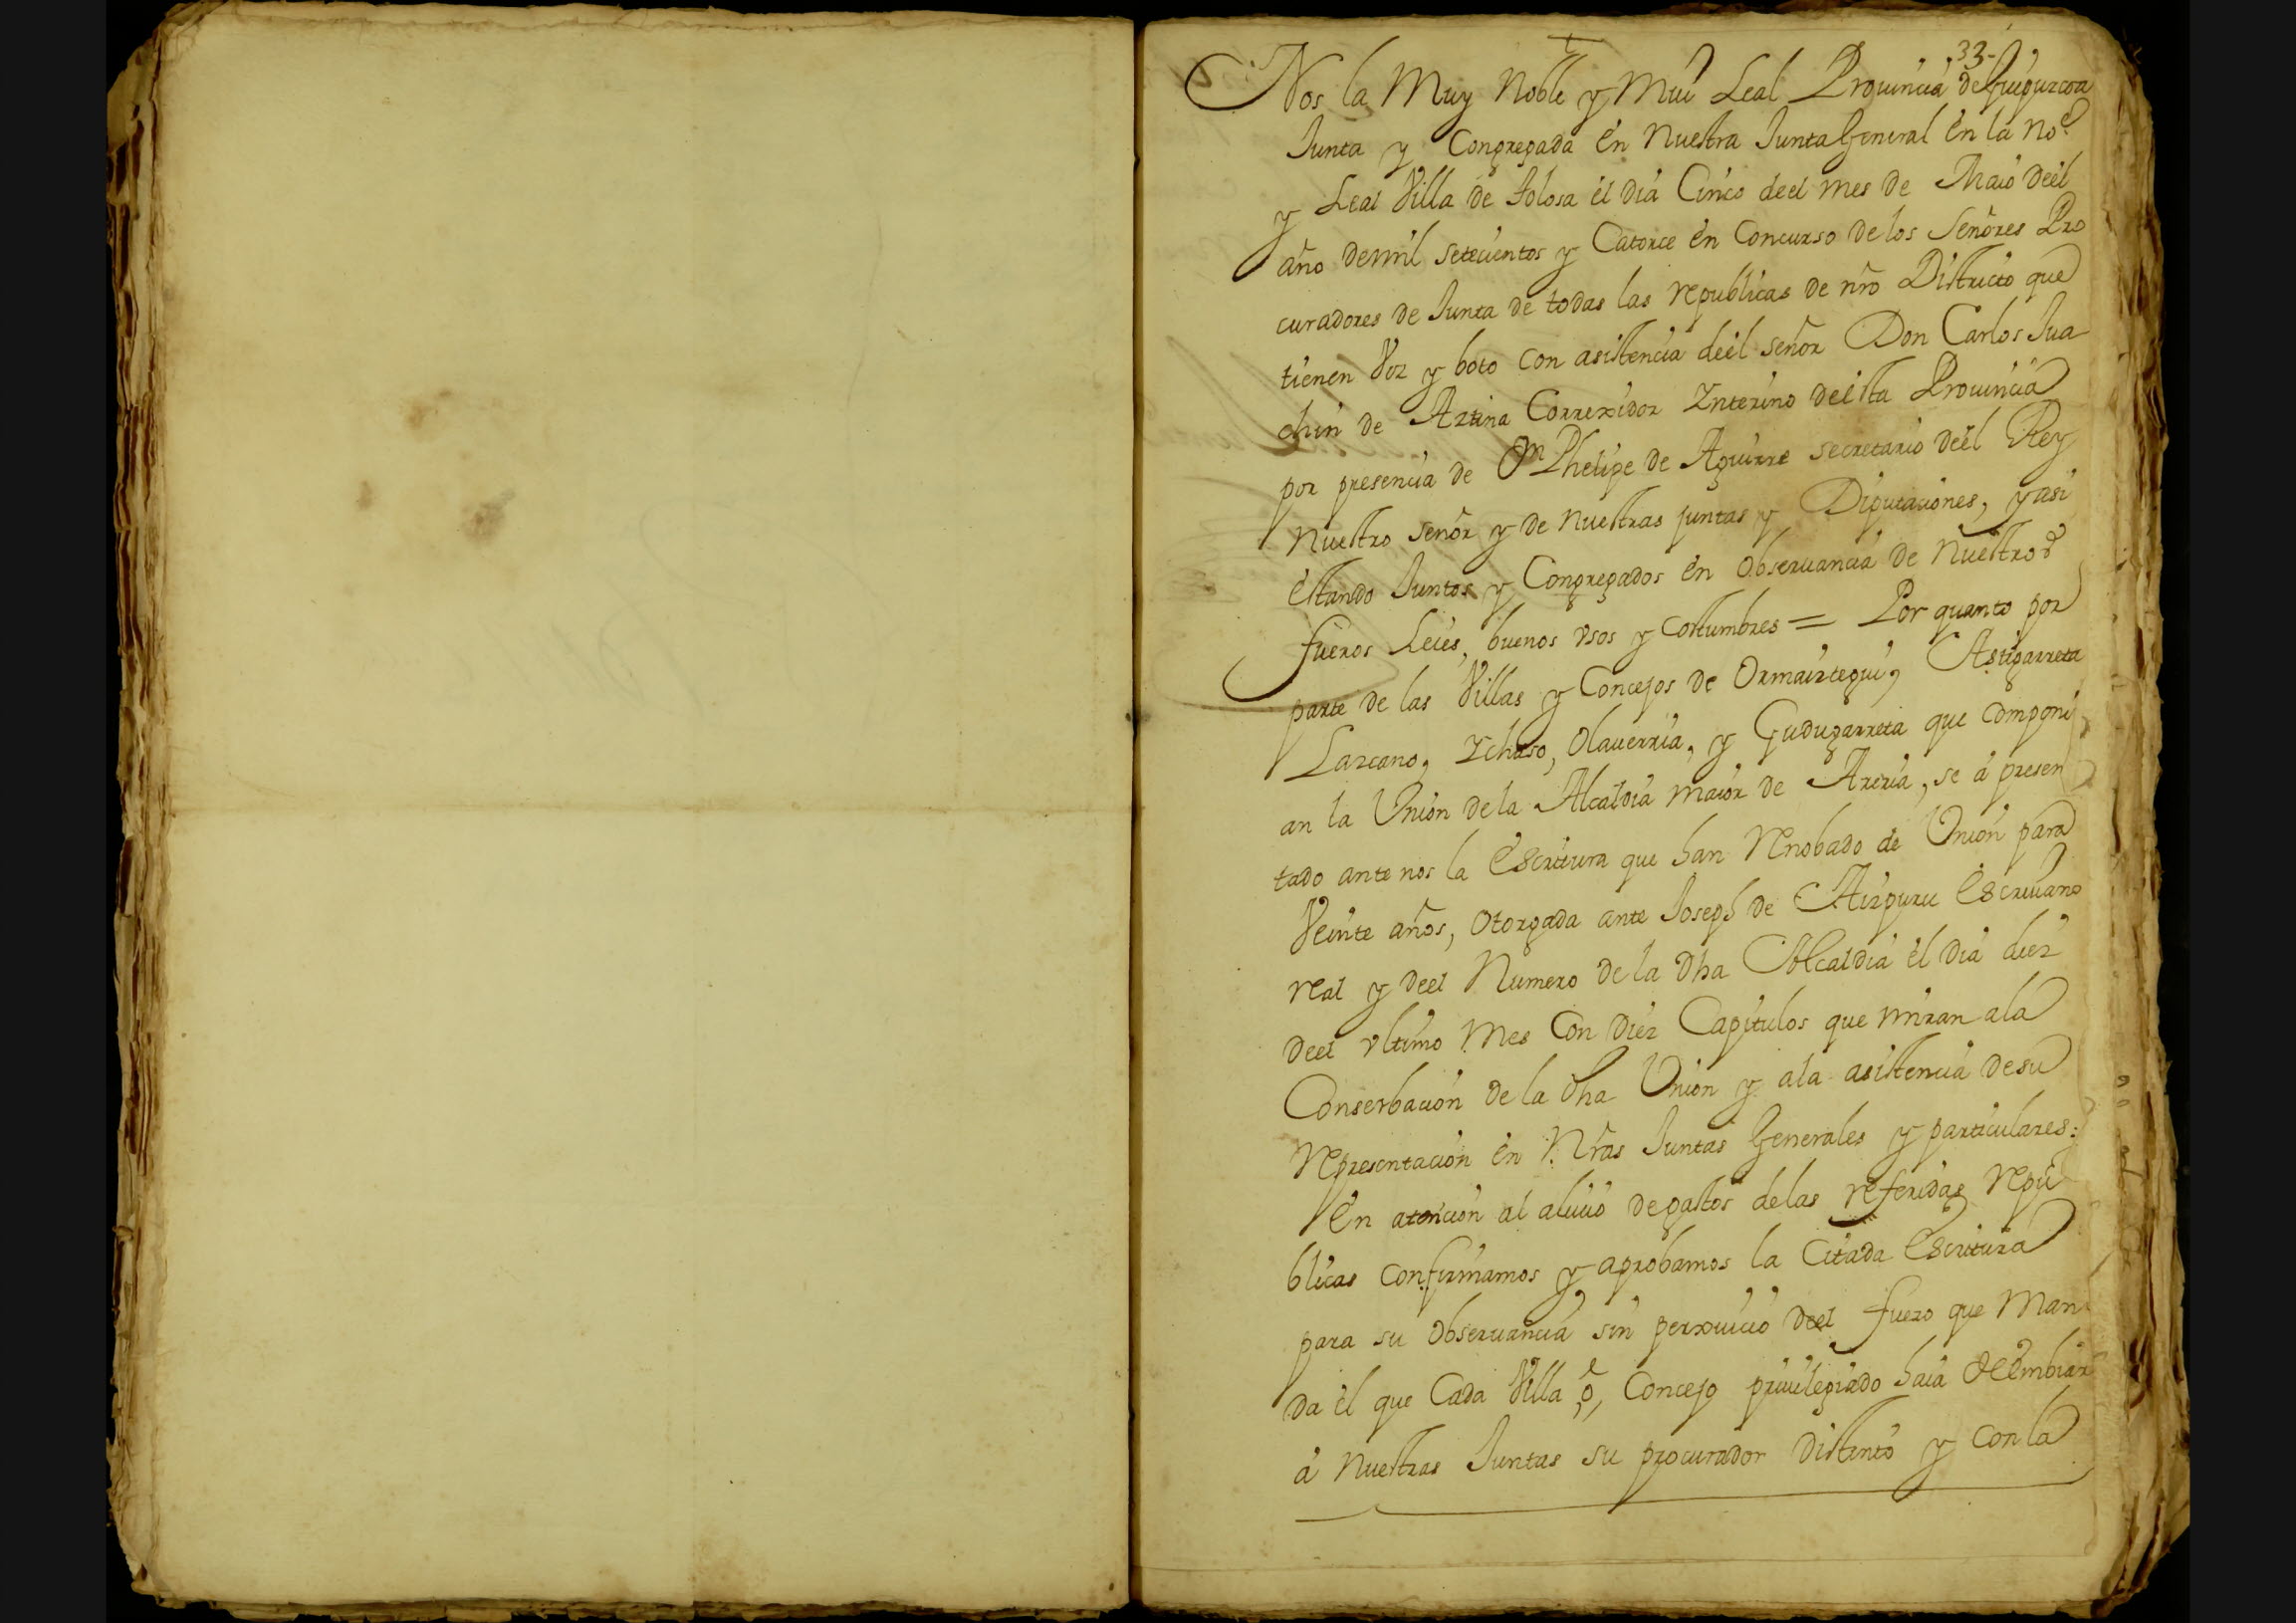 33
Nos la Muy Noble y Mui Leal Prouincia de Guipuzcoa
Junta y Congregada en Nuestra Junta General en la noe
y Leal Villa de Tolosa el dia Cinco deel mes de Maio deel
año demil setecientos y Catorce en Concurso delos Señores Pro
curadores de Junta de todas las republicas de nro Districto que
tienen Voz y boto con asistencia deel señor Don Carlos Jua
chin de Aztina Correxidor Interino deesta Prouincia
por presencia de Dn Phelipe de Aguirre secretario deel Rey
nuestro señor y de nuestras juntas y Diputaciones, y asi
estando Juntos y Congregados en obseruancia de nuestros
fueros Leies, buenos vsos y costumbres = Por quanto por
parte de las Villas y Concejos de Ormaiztegui, Astigarreta
Lazcano, Ichaso, Olauerria, y Gudugarreta que componi
an la Union dela Alcaldia maior de Areria, se á presen
tado ante nos la escritura que han renobado de Union para
Veinte años, otorgada ante Joseph de Aizpuru escriuano
real y deel Numero de la dha Alcaldia el dia diez
deel vltimo mes Con diez Capitulos que miran ala
Conserbacion de la dha Union y ala asistencia desu
representacion en Nras Juntas Generales y particulares:
En atencion al aliuio degastos delas referidas repu
blicas confirmamos y aprobamos la Citada escritura
para su obseruancia sin perxuicio deel fuero que Man
da el que Cada Villa ó, Concejo priuilegiado haia de embiar
á nuestras Juntas su procurador distinto y con la